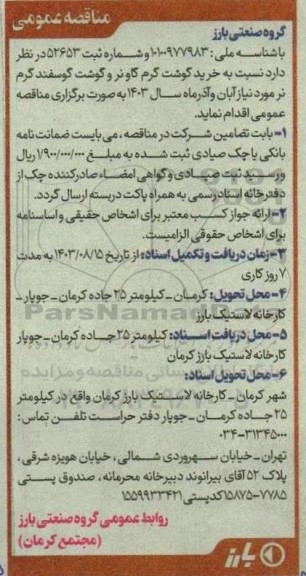 مناقصه عمومی
گروه صنعتی بارز
با شناسه ملی: ۱۰۱۰۰۹۷۷۹۸۳ و شماره ثبت ۵۲۶۵۳ در نظر
دارد نسبت به خرید گوشت گرم گاو نر و گوشت گوسفند گرم
نر مورد نیاز آبان و آذر ماه سال ۱۴۰۳ به صورت برگزاری مناقصه
عمومی اقدام نماید.
۱- بابت تضامین شرکت در مناقصه، می بایست ضمانت نامه
بانکی یا چک صیادی ثبت شده به مبلغ ۱/۹۰۰/۰۰۰/۰۰۰ ریال
و رسید ثبت صیادی و گواهی امضاء صادر کننده چک از
دفترخانه اسناد رسمی به همراه پاکت دربسته ارسال گردد.
۲- ارائه جواز کسب معتبر برای اشخاص حقیقی و اساسنامه
برای اشخاص حقوقی الزامیست.
۳- زمان دریافت و تکمیل اسناد: از تاریخ ۱۴۰۳/۰۸/۱۵ به مدت
۷ روز کاری
۴- محل تحویل: کرمان - کیلومتر ۲۵ جاده کرمان - جوپار -
کارخانه لاستیک بارز
۵- محل دریافت اسناد: کیلومتر ۲۵ جاده کرمان - جوپار
کارخانه لاستیک بارز کرمان
۶- محل تحویل اسناد:
شهر کرمان - کارخانه لاستیک بارز کرمان واقع در کیلومتر
۲۵ جاده کرمان - جوپار دفتر حراست تلفن تماس:
۰۳۴-۳۱۳۴۵۰۰۰
تهران - خیابان سهروردی شمالی، خیابان هویزه شرقی،
پلاک ۵۲ آقای بیرانوند دبیرخانه محرمانه، صندوق پستی
۱۵۸۷۵-۷۷۸۵ کدپستی ۱۵۵۹۹۳۳۴۲۱
روابط عمومی گروه صنعتی بارز
(مجتمع کرمان)
بارز